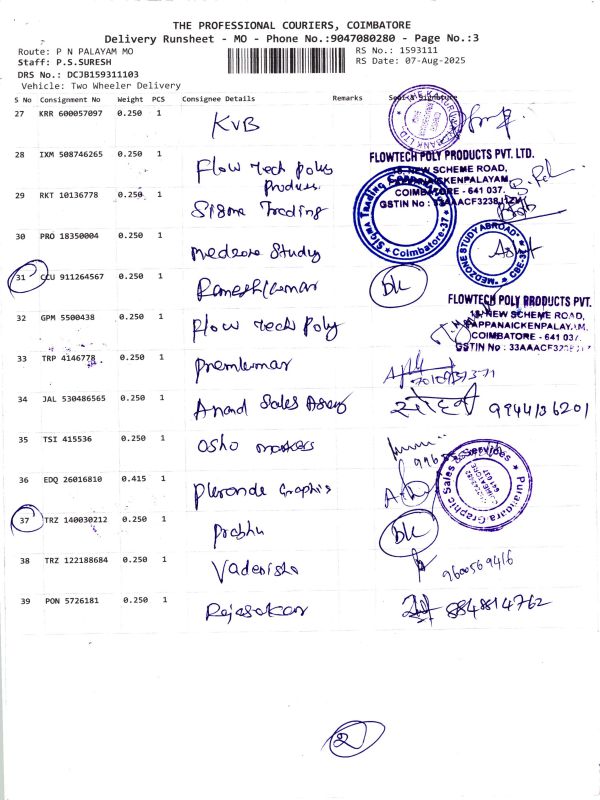 THE PROFESSIONAL COURIERS, COIMBATORE
Delivery Runsheet - MO - Phone No.:9047080280 - Page No.:3
Route: P N PALAYAM MO
RS No.: 1593111
Staff: P.S.SURESH
RS Date: 07-Aug-2025
DRS No.: DCJB159311103
Vehicle: Two Wheeler Delivery
S No Consignment No Weight PCS Consignee Details Remarks Signature
27 KRR 600057097 0.250 1 KVB
28 IXM 508746265 0.250 1 Flow tech polys
FLOWTECH POLY PRODUCTS PVT. LTD.
NEW SCHEME ROAD,
PAPPANAICKENPALAYAM,
COIMBATORE - 641 037.
29 RKT 10136778 0.250 1 Sigma Trading
Sigma Trading Company
Coimbatore-37
30 PRO 18350004 0.250 1 medzone Study
MEDZONE STUDY ABROAD
CBE-37
31 CCU 911264567 0.250 1 Rameshkumar DL
32 GPM 5500438 0.250 1 Flow tech poly
FLOWTECH POLY PRODUCTS PVT.
NEW SCHEME ROAD,
PAPPANAICKENPALAY
COIMBATORE - 641 037.
33 TRP 4146778 0.250 1 Premkumar
34 JAL 530486565 0.250 1 Anand Sales 9944136201
35 TSI 415536 0.250 1 Osho
36 EDQ 26016810 0.415 1 Graphis
Graphic Sales & Services
37 TRZ 140030212 0.250 1 Prabhu DL
38 TRZ 122188684 0.250 1 9600569416
39 PON 5726181 0.250 1 Rajasekar 8848814762
2